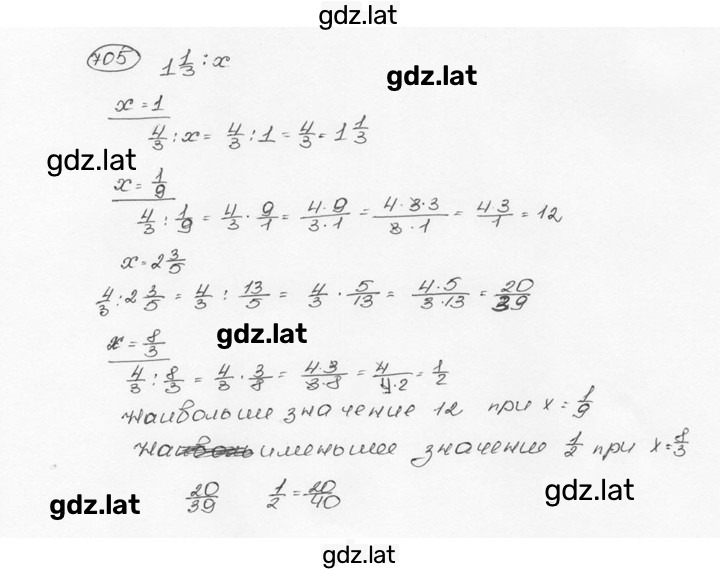 gdz.lat
705 1 1/3 : x
gdz.lat
x = 1
4/3 : x = 4/3 : 1 = 4/3 = 1 1/3
gdz.lat
x = 1/9
4/3 : 1/9 = 4/3 · 9/1 = 4·9/3·1 = 4·3·3/3·1 = 4·3/1 = 12
x = 2 3/5
4/3 : 2 3/5 = 4/3 : 13/5 = 4/3 · 5/13 = 4·5/3·13 = 20/39
gdz.lat
x = 8/3
4/3 : 8/3 = 4/3 · 3/8 = 4·3/3·8 = 4/4·2 = 1/2
наибольше значение 12 при x = 1/9
наименьшее значение 1/2 при x = 8/3
gdz.lat 20/39 1/2 = 20/40 gdz.lat
gdz.lat